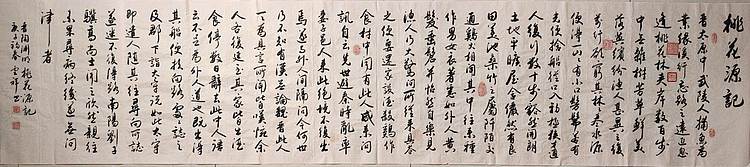 桃花源記
晉太原中武陵人捕魚為
業緣溪行忘路之遠近忽
逢桃花林夾岸數百步
中無雜樹芳草鮮美
落英繽紛漁人甚異之復
前行欲窮其林林盡水源
便得一山山有小口髣髴若有
光便捨船從口入初極狹才通
人復行數十步豁然開朗
土地平曠屋舍儼然有良
田美池桑竹之屬阡陌交
通雞犬相聞其中往來種
作男女衣著悉如外人黃
髮垂髫並怡然自樂見
漁人乃大驚問所從來具答
之便要還家設酒殺雞作
食村中聞有此人咸來問
訊自云先世避秦時亂率
妻子邑人來此絕境不復出
焉遂與外人間隔問今何世
乃不知有漢無論魏晉此人
一一為具言所聞皆嘆惋餘
人各復延至其家皆出酒
食停數日辭去此中人語
云不足為外人道也既出得
其船便扶向路處處誌之
及郡下詣太守說如此太守
即遣人隨其往尋向所誌
遂迷不復得路南陽劉子
驥高尚士聞之欣然親往
未果尋病終後遂無問
津者
陶淵明桃花源記
書